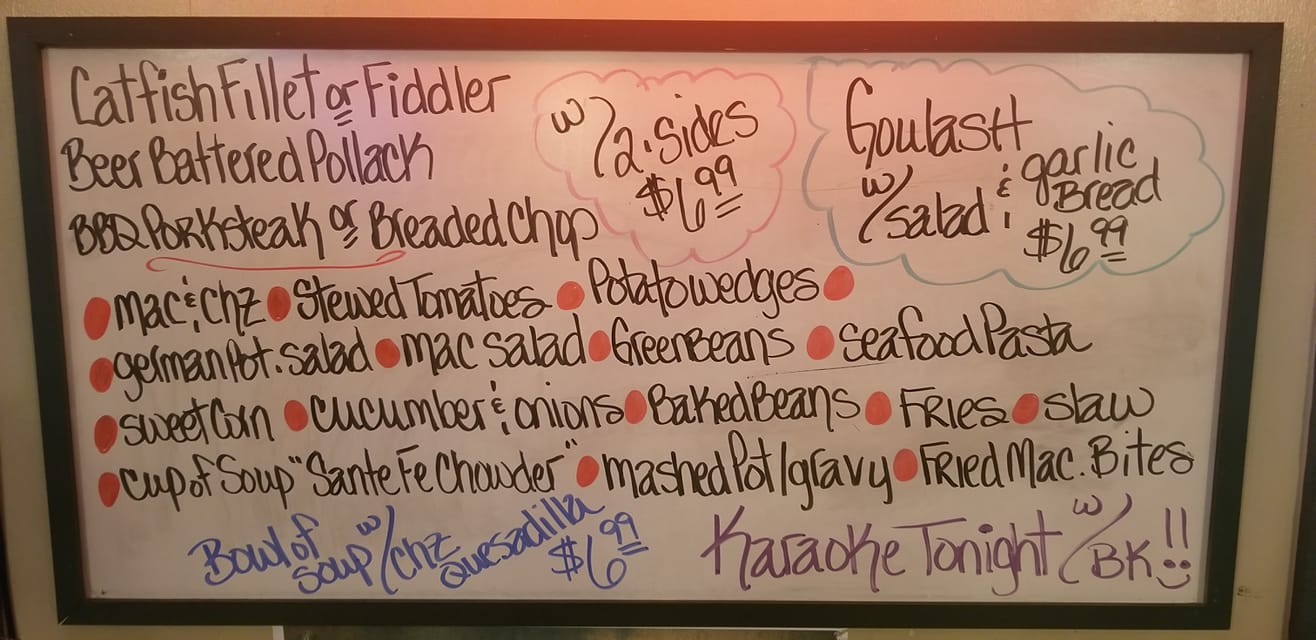 Catfish Fillet or Fiddler
Beer Battered Pollack
BBQ Porksteak or Breaded Chop
w/2·Sides
$6.99
Goulash
w/salad & garlic Bread
$6.99
mac & chz • Stewed Tomatoes • Potato wedges •
• german Pot. salad • mac salad • Green Beans • seafood Pasta
• sweet Corn • cucumber & onions • Baked Beans • Fries • slaw
• cup of Soup "Sante Fe Chowder" • mashed Pot/gravy • Fried Mac. Bites
Bowl of soup w/chz quesadilla
$6.99
Karaoke Tonight w/BK!!